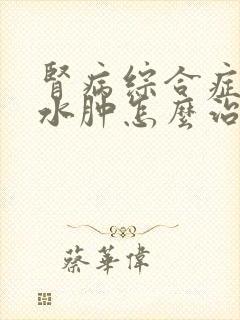 腎病綜合症
水肿怎麼治
蔡華偉